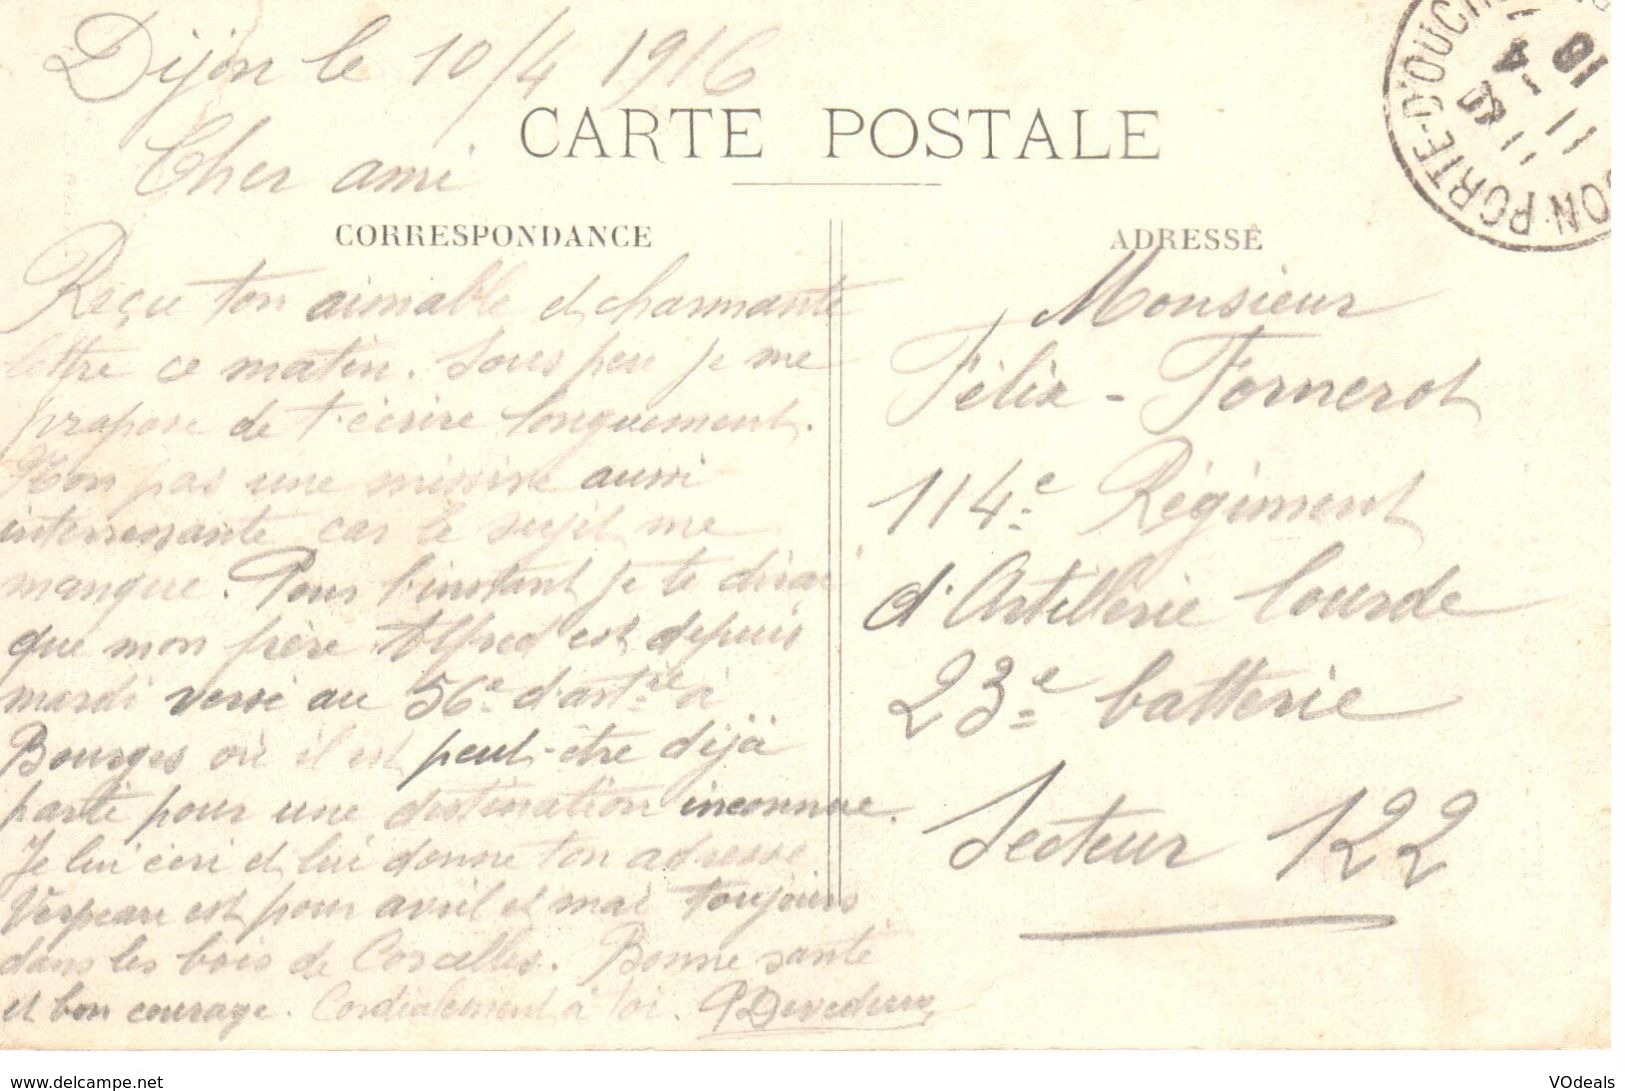 Dijon le 10/4 1916
CARTE POSTALE
Cher ami
CORRESPONDANCE
Reçu ton aimable et charmante
lettre ce matin. Sous peu je me
propose de t'écrire longuement.
Non pas une missive aussi
interressante car le sujet me
manque. Pour l'instant je te dirai
que mon frère Alfred est depuis
mardi versé au 56e d'artie à
Bourges où il est peut-être déjà
parti pour une destination inconnue.
Je lui écri et lui donne ton adresse
est pour avril et mai toujours
dans les bois de Corcelles. Bonne santé
et bon courage. Cordialement à toi.
ADRESSE
Monsieur
Félix - Fornerot
114e Régiment
d'Artillerie lourde
23e batterie
Secteur 122
PORTE-D'OUCHE
www.delcampe.net
VOdeals